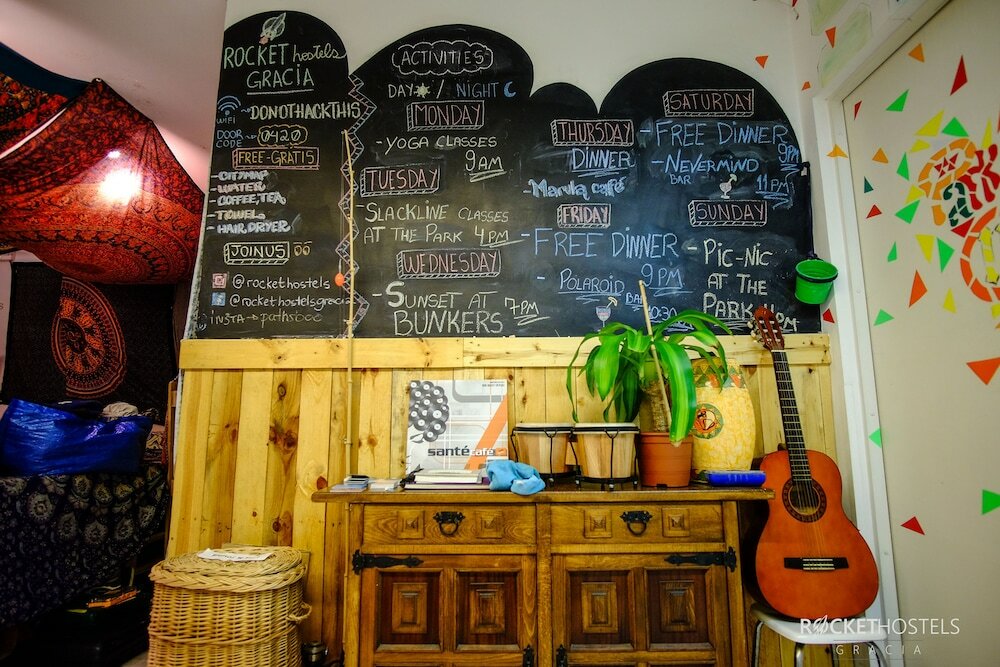 ROCKET hostels
GRACIA
WIFI - DONOTHACKTHIS
DOOR CODE - 0420
FREE-GRATIS
- CITYMAP
- WATER
- COFFEE, TEA
- TOWEL
- HAIR DRYER
JOIN US
@rockethostels
@rockethostelsgracia
INSTA → pathsboc
ACTIVITIES
DAY / NIGHT
MONDAY
- YOGA CLASSES
9AM
TUESDAY
- SLACKLINE CLASSES
AT THE PARK 4PM
WEDNESDAY
- SUNSET AT
BUNKERS 7PM
THURSDAY
DINNER
- Marula café
FRIDAY
- FREE DINNER
9PM
- POLAROID
BAR
SATURDAY
- FREE DINNER
9PM
- NEVERMIND
BAR 11PM
SUNDAY
- PIC-NIC
AT THE
PARK
santé café
ROCKETHOSTELS
GRACIA